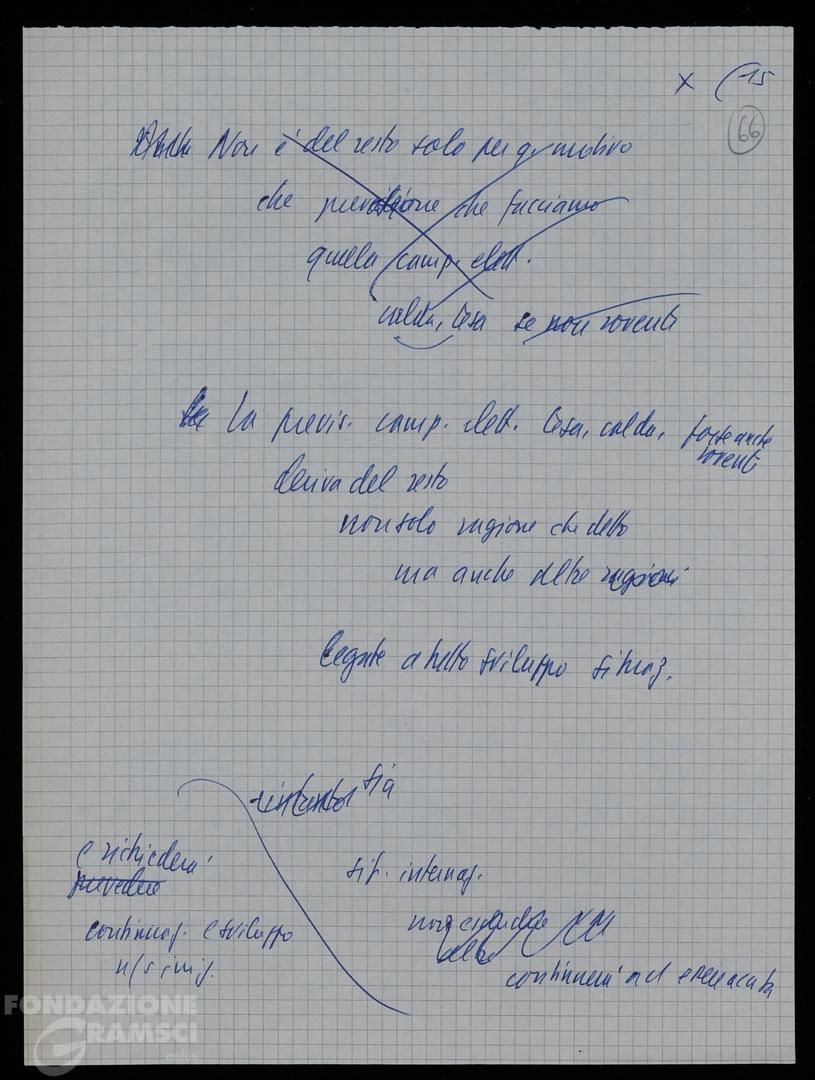 x (15
66
Non è del resto solo per q. motivo
che previsione che facciamo
quella camp. elett.
calda, tesa se non roventi
La previs. camp. elett. tesa, calda, forse anche
roventi
deriva del resto
non solo ragione che detto
ma anche altre ragioni
legate a tutto sviluppo situaz.
intanto sia
e richiederà
prevedere
sit. internaz.
continuaz. e sviluppo
n/s iniz.
non esclude
altre
continuerà ad essere acuta
FONDAZIONE
GRAMSCI
onlus